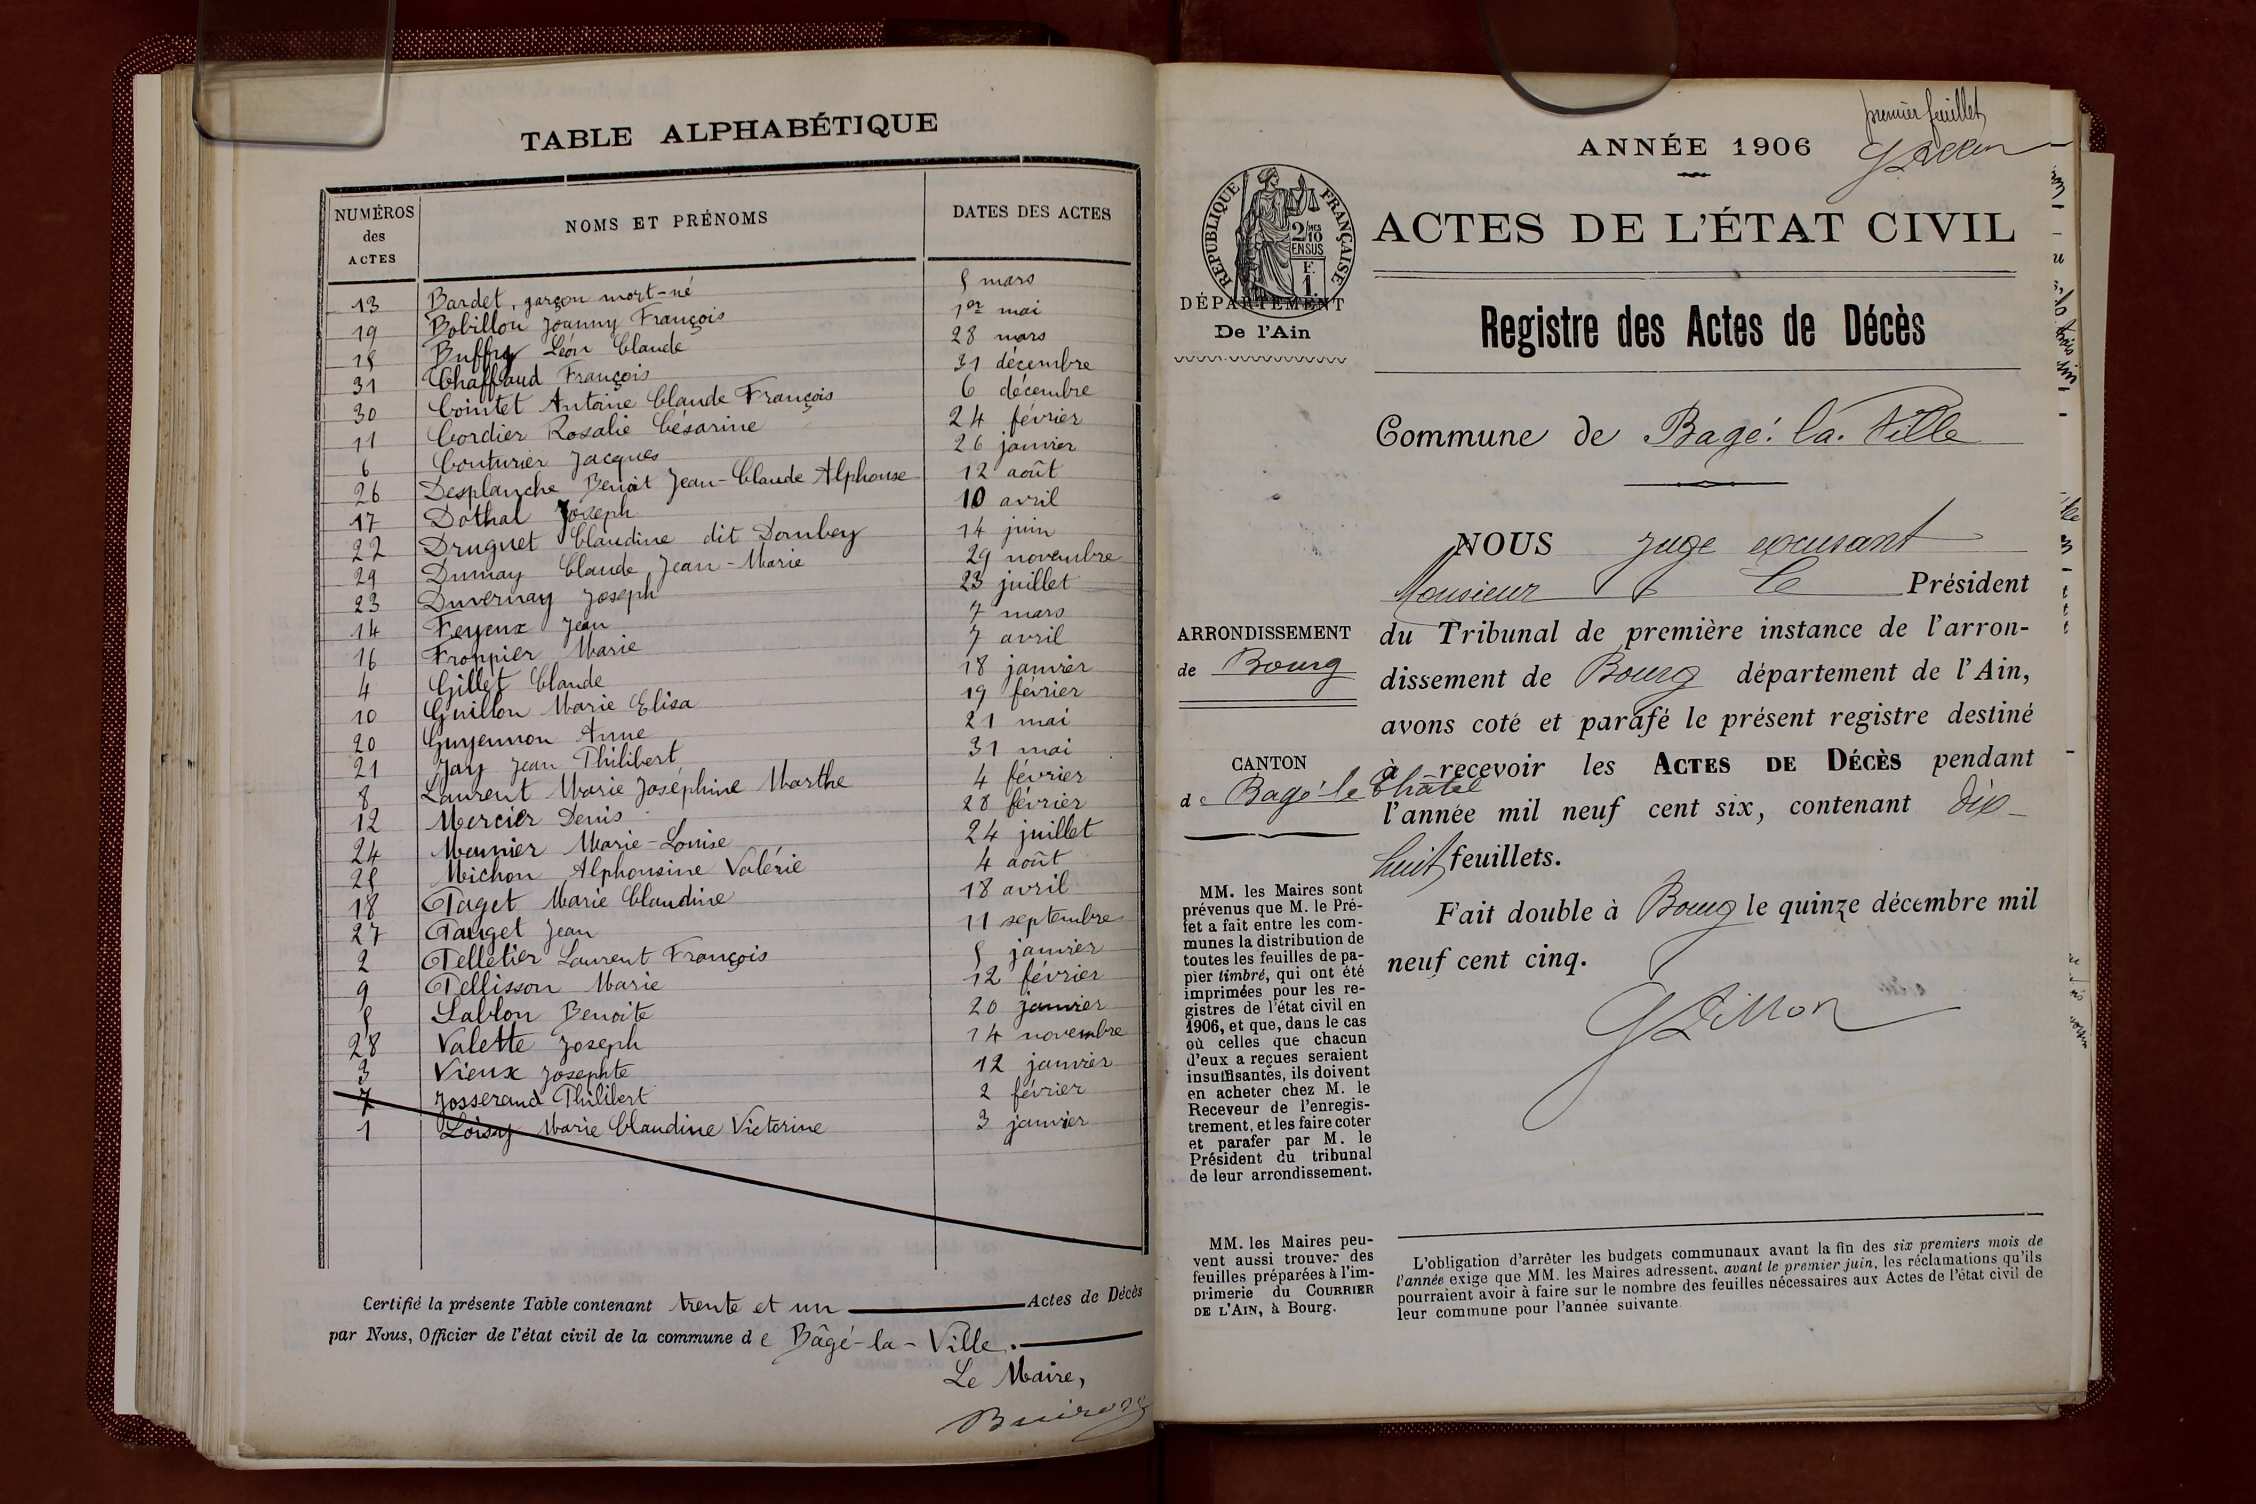 TABLE ALPHABÉTIQUE
NUMÉROS des ACTES NOMS ET PRÉNOMS DATES DES ACTES
13 Bardet, garçon mort-né 5 mars
19 Bobillon Joanny François 1er mai
15 Buffry Léon Claude 28 mars
31 Chaffaud François 31 décembre
30 Cointet Antoine Claude François 6 décembre
11 Cordier Rosalie Césarine 24 février
6 Couturier Jacques 26 janvier
26 Desplanche Benoit Jean-Claude Alphonse 12 août
17 Dothal Joseph 10 avril
22 Druguet Claudine dit Dombey 14 juin
29 Dumay Claude Jean-Marie 29 novembre
23 Duvernay Joseph 23 juillet
14 Feyeux Jean 7 mars
16 Froppier Marie 7 avril
4 Gillet Claude 18 janvier
10 Guillon Marie Elisa 19 février
20 Guyennon Anne 21 mai
21 Jary Jean Philibert 31 mai
8 Laurent Marie Joséphine Marthe 4 février
12 Mercier Denis 28 février
24 Meunier Marie-Louise 24 juillet
25 Michon Alphonsine Valérie 4 août
18 Paget Marie Claudine 18 avril
27 Pauget Jean 11 septembre
2 Pelletier Laurent François 5 janvier
9 Pellisson Marie 12 février
5 Sablon Benoite 20 janvier
28 Valette Joseph 14 novembre
3 Vieux Josephte 12 janvier
7 Josserand Philibert 2 février
1 Loisy Marie Claudine Victorine 3 janvier
Certifié la présente Table contenant trente et un Actes de Décès
par Nous, Officier de l'état civil de la commune de Bâgé-la-Ville.
Le Maire,
premier feuillet
ANNÉE 1906
RÉPUBLIQUE FRANÇAISE
2/10 EN SUS
F. 1.
ACTES DE L'ÉTAT CIVIL
DÉPARTEMENT
De l'Ain
Registre des Actes de Décès
Commune de Bagé. la. Ville
NOUS juge excusant
Monsieur Le Président
du Tribunal de première instance de l'arron-
dissement de Bourg département de l'Ain,
avons coté et parafé le présent registre destiné
à recevoir les ACTES DE DÉCÈS pendant
l'année mil neuf cent six, contenant dix-
huit feuillets.
Fait double à Bourg le quinze décembre mil
neuf cent cinq.
ARRONDISSEMENT
de Bourg
CANTON
de Bagé-le Châtel
MM. les Maires sont
prévenus que M. le Pré-
fet a fait entre les com-
munes la distribution de
toutes les feuilles de pa-
pier timbré, qui ont été
imprimées pour les re-
gistres de l'état civil en
1906, et que, dans le cas
où celles que chacun
d'eux a reçues seraient
insuffisantes, ils doivent
en acheter chez M. le
Receveur de l'enregis-
trement, et les faire coter
et parafer par M. le
Président du tribunal
de leur arrondissement.
MM. les Maires peu-
vent aussi trouver des
feuilles préparées à l'im-
primerie du COURRIER
DE L'AIN, à Bourg.
L'obligation d'arrêter les budgets communaux avant la fin des six premiers mois de
l'année exige que MM. les Maires adressent, avant le premier juin, les réclamations qu'ils
pourraient avoir à faire sur le nombre des feuilles nécessaires aux Actes de l'état civil de
leur commune pour l'année suivante.